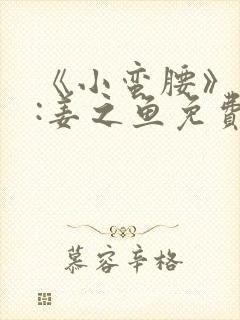 《小蛮腰》
:姜之鱼免費
慕容辛格